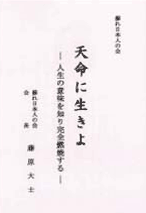 蘇れ日本人の会
天命に生きよ
―人生の意味を知り完全燃焼する―
蘇れ日本人の会
会長
藤原大士